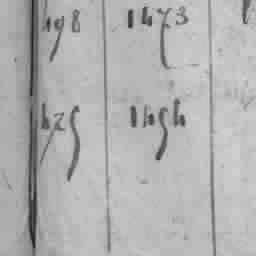 498 1473
425 1454